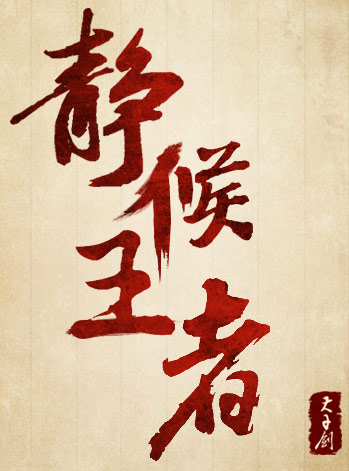 静候王者
天子剑